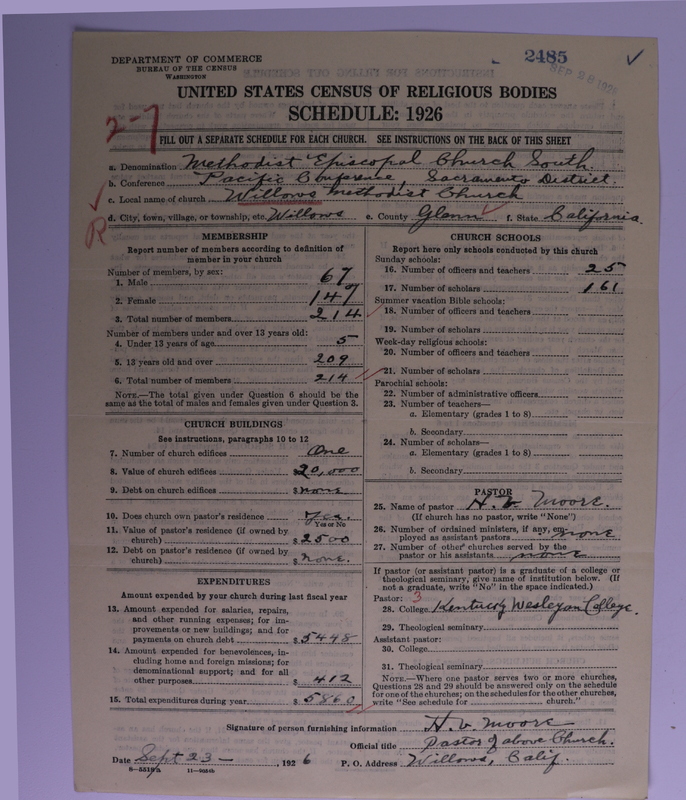 DEPARTMENT OF COMMERCE
BUREAU OF THE CENSUS
WASHINGTON
2485
SEP 28 1926
UNITED STATES CENSUS OF RELIGIOUS BODIES
SCHEDULE: 1926
2-7
FILL OUT A SEPARATE SCHEDULE FOR EACH CHURCH. SEE INSTRUCTIONS ON THE BACK OF THIS SHEET
a. Denomination Methodist Episcopal Church South.
b. Conference Pacific Conference, Sacramento District.
c. Local name of church Willows Methodist Church
d. City, town, village, or township, etc. Willows e. County Glenn f. State California.
R
MEMBERSHIP
Report number of members according to definition of
member in your church
Number of members, by sex:
1. Male 67
2. Female 147
3. Total number of members 214
Number of members under and over 13 years old:
4. Under 13 years of age 5
5. 13 years old and over 209
6. Total number of members 214
NOTE.—The total given under Question 6 should be
same as the total of males and females given under Question 3.
CHURCH BUILDINGS
See instructions, paragraphs 10 to 12
7. Number of church edifices One
8. Value of church edifices $20,000
9. Debt on church edifices $none.
10. Does church own pastor's residence Yes.
Yes or No
11. Value of pastor's residence (if owned by
church) $2500
12. Debt on pastor's residence (if owned by
church) $none.
EXPENDITURES
Amount expended by your church during last fiscal year
13. Amount expended for salaries, repairs,
and other running expenses; for im-
provements or new buildings; and for
payments on church debt $5448
14. Amount expended for benevolences, in-
cluding home and foreign missions; for
denominational support; and for all
other purposes $412
15. Total expenditures during year $5860
CHURCH SCHOOLS
Report here only schools conducted by this church
Sunday schools:
16. Number of officers and teachers 25
17. Number of scholars 161
Summer vacation Bible schools:
18. Number of officers and teachers
19. Number of scholars
Week-day religious schools:
20. Number of officers and teachers
21. Number of scholars
Parochial schools:
22. Number of administrative officers
23. Number of teachers—
a. Elementary (grades 1 to 8)
b. Secondary
24. Number of scholars—
a. Elementary (grades 1 to 8)
b. Secondary
PASTOR
25. Name of pastor H. V. Moore.
(If church has no pastor, write "None")
26. Number of ordained ministers, if any, em-
ployed as assistant pastors none
27. Number of other churches served by the
pastor or his assistants none
If pastor (or assistant pastor) is a graduate of a college or
theological seminary, give name of institution below. (If
not a graduate, write "No" in the space indicated.)
Pastor: 3
28. College Kentucky Wesleyan College.
29. Theological seminary
Assistant pastor:
30. College
31. Theological seminary
NOTE.—Where one pastor serves two or more churches,
Questions 28 and 29 should be answered only on the schedule
for one of the churches; on the schedules for the other churches,
write "See schedule for church."
Signature of person furnishing information H. V. Moore
Official title Pastor of above Church.
Date Sept 23 — , 1926 P. O. Address Willows, Calif.